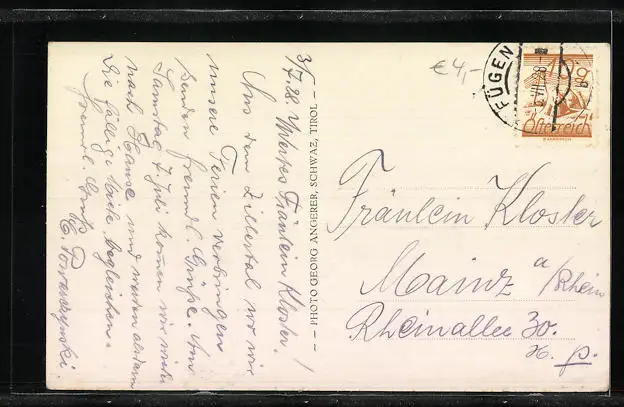 3/7.28. Wertes Fräulein Kloster!
Aus dem Zillertal wo wir
unsere Ferien verbringen
senden freundl. Grüße. Am
Samstag 7. Juli kommen wir wieder
nach Hause und werden alsdann
die fällige Miete begleichen.
Freundl. Gruß
PHOTO GEORG ANGERER, SCHWAZ, TIROL
€4,-
FÜGEN
Österreich
Fräulein Kloster
Mainz a/Rhein
Rheinallee 30.